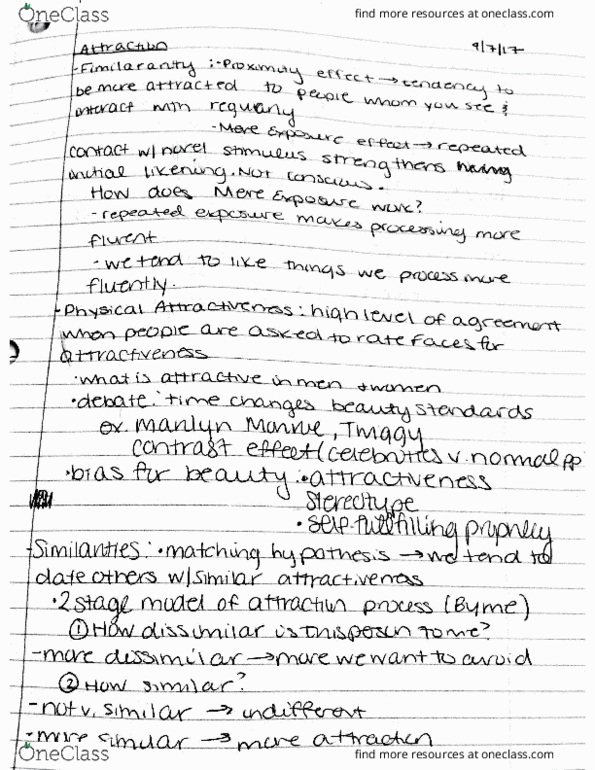 OneClass
find more resources at oneclass.com
Attraction 9/7/17
-Fimilaranity :-Proximity effect→tendency to
be more attracted to people whom you see &
interact with regularly
-More Exposure effect→repeated
contact w/novel stimulus strengthens
initial likening. Not conscious.
How does Mere Exposure work?
-repeated exposure makes processing more
fluent
-we tend to like things we process more
fluently.
-Physical Attractiveness: high level of agreement
when people are asked to rate faces for
attractiveness
•what is attractive in men + women
•debate: time changes beauty standards
ex. Marilyn Monroe, Twiggy
contrast effect (celebrities v. normal pp
•bias for beauty: •attractiveness
stereotype
•self-fullfilling prophecy
-Similarities: •matching hypothesis →we tend to
date others w/similar attractiveness
•2 stage model of attraction process (Byrne)
①How dissimilar is this person to me?
-more dissimilar→more we want to avoid
②How similar?
-not v. similar → indifferent
-more similar → more attraction
OneClass
find more resources at oneclass.com